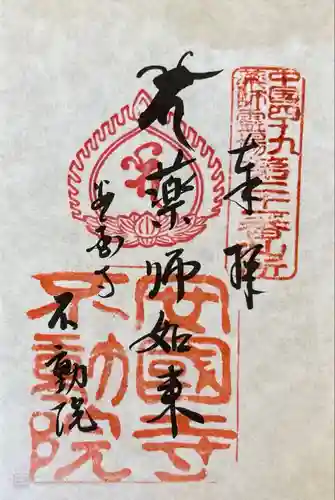 中国四十九
薬師霊場第二十番札所
奉拝
薬師如来
安国寺
不動院
安國寺
不動院